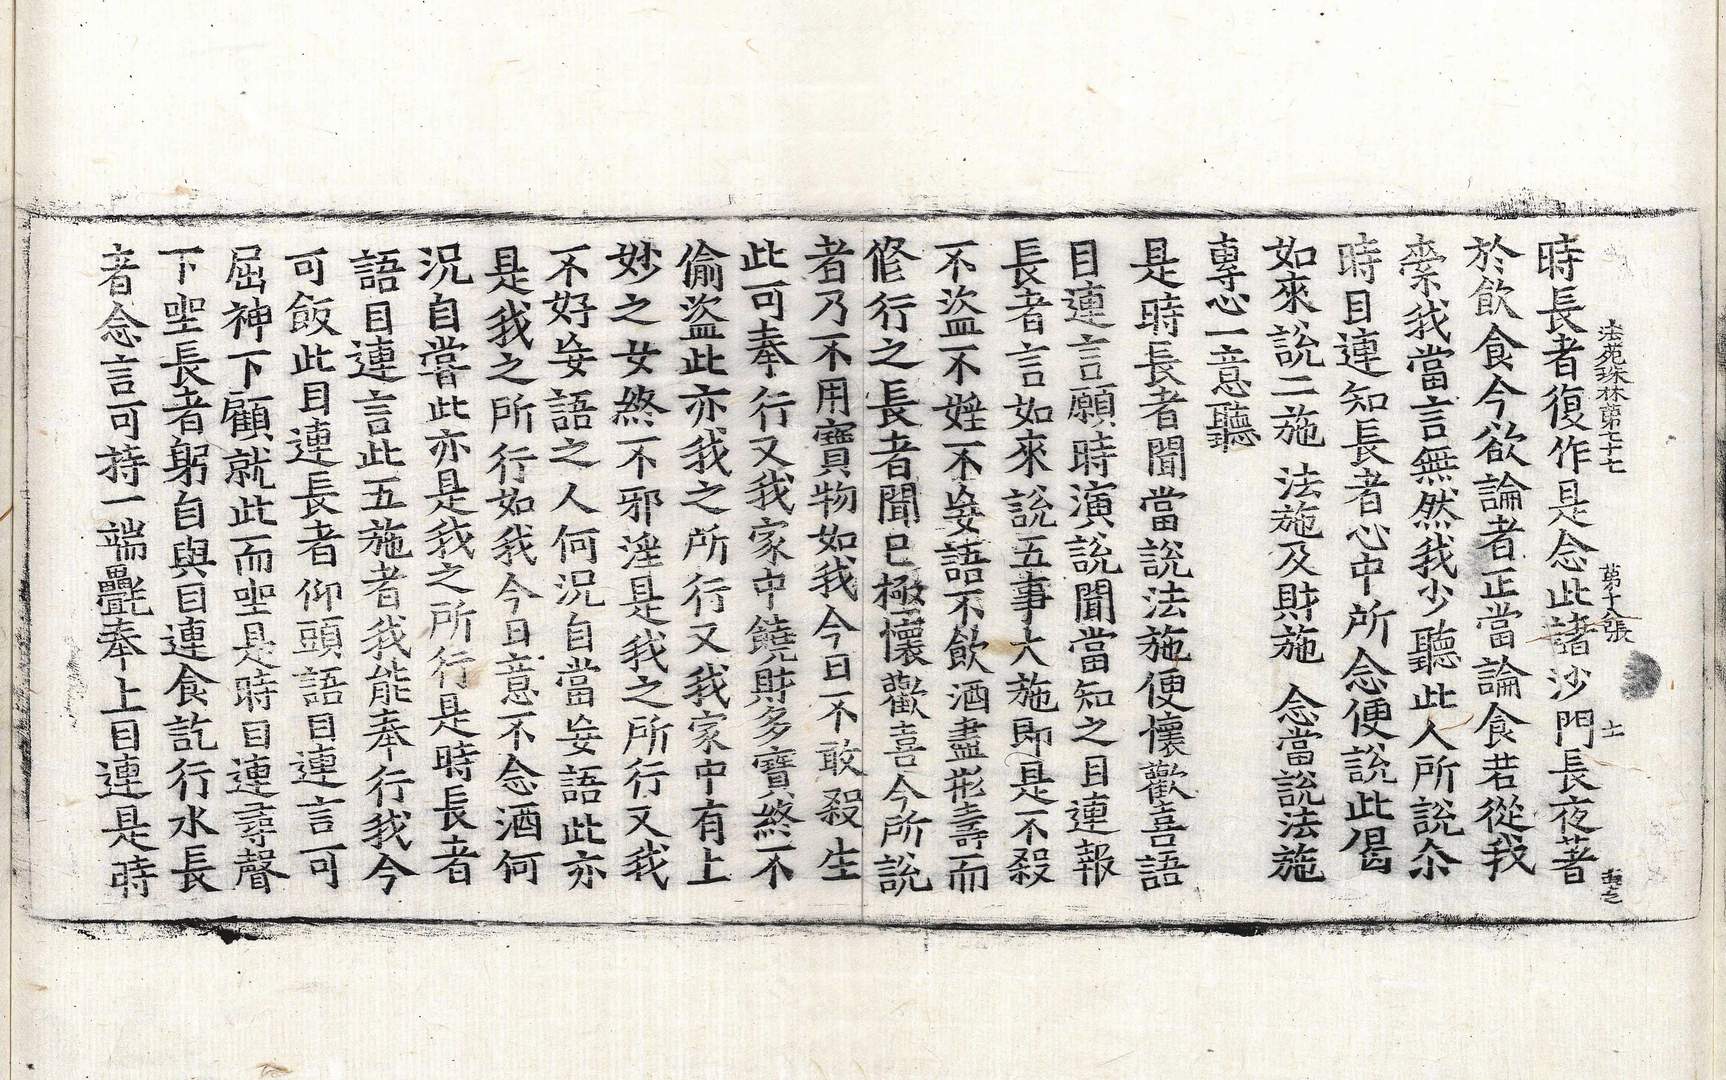 法苑珠林第七十七 第十八張 士
時長者復作是念此諸沙門長夜著
於飲食今欲論者正當論食若從我
索我當言無然我少聽此人所說尒
時目連知長者心中所念便說此偈
如來說二施 法施及財施 念當說法施
專心一意聽
是時長者聞當說法施便懷歡喜語
目連言願時演說聞當知之目連報
長者言如來說五事大施即是不殺
不盜不婬不妄語不飲酒盡形壽而
修行之長者聞已極懷歡喜今所說
者乃不用寶物如我今日不敢殺生
此可奉行又我家中饒財多寶終不
偷盜此亦我之所行又我家中有上
妙之女終不邪淫是我之所行又我
不好妄語之人何況自當妄語此亦
是我之所行如我今日意不念酒何
況自嘗此亦是我之所行是時長者
語目連言此五施者我能奉行我今
可飯此目連長者仰頭語目連言可
屈神下顧就此而坐是時目連尋聲
下坐長者躬自與目連食訖行水長
者念言可持一端㲲奉上目連是時